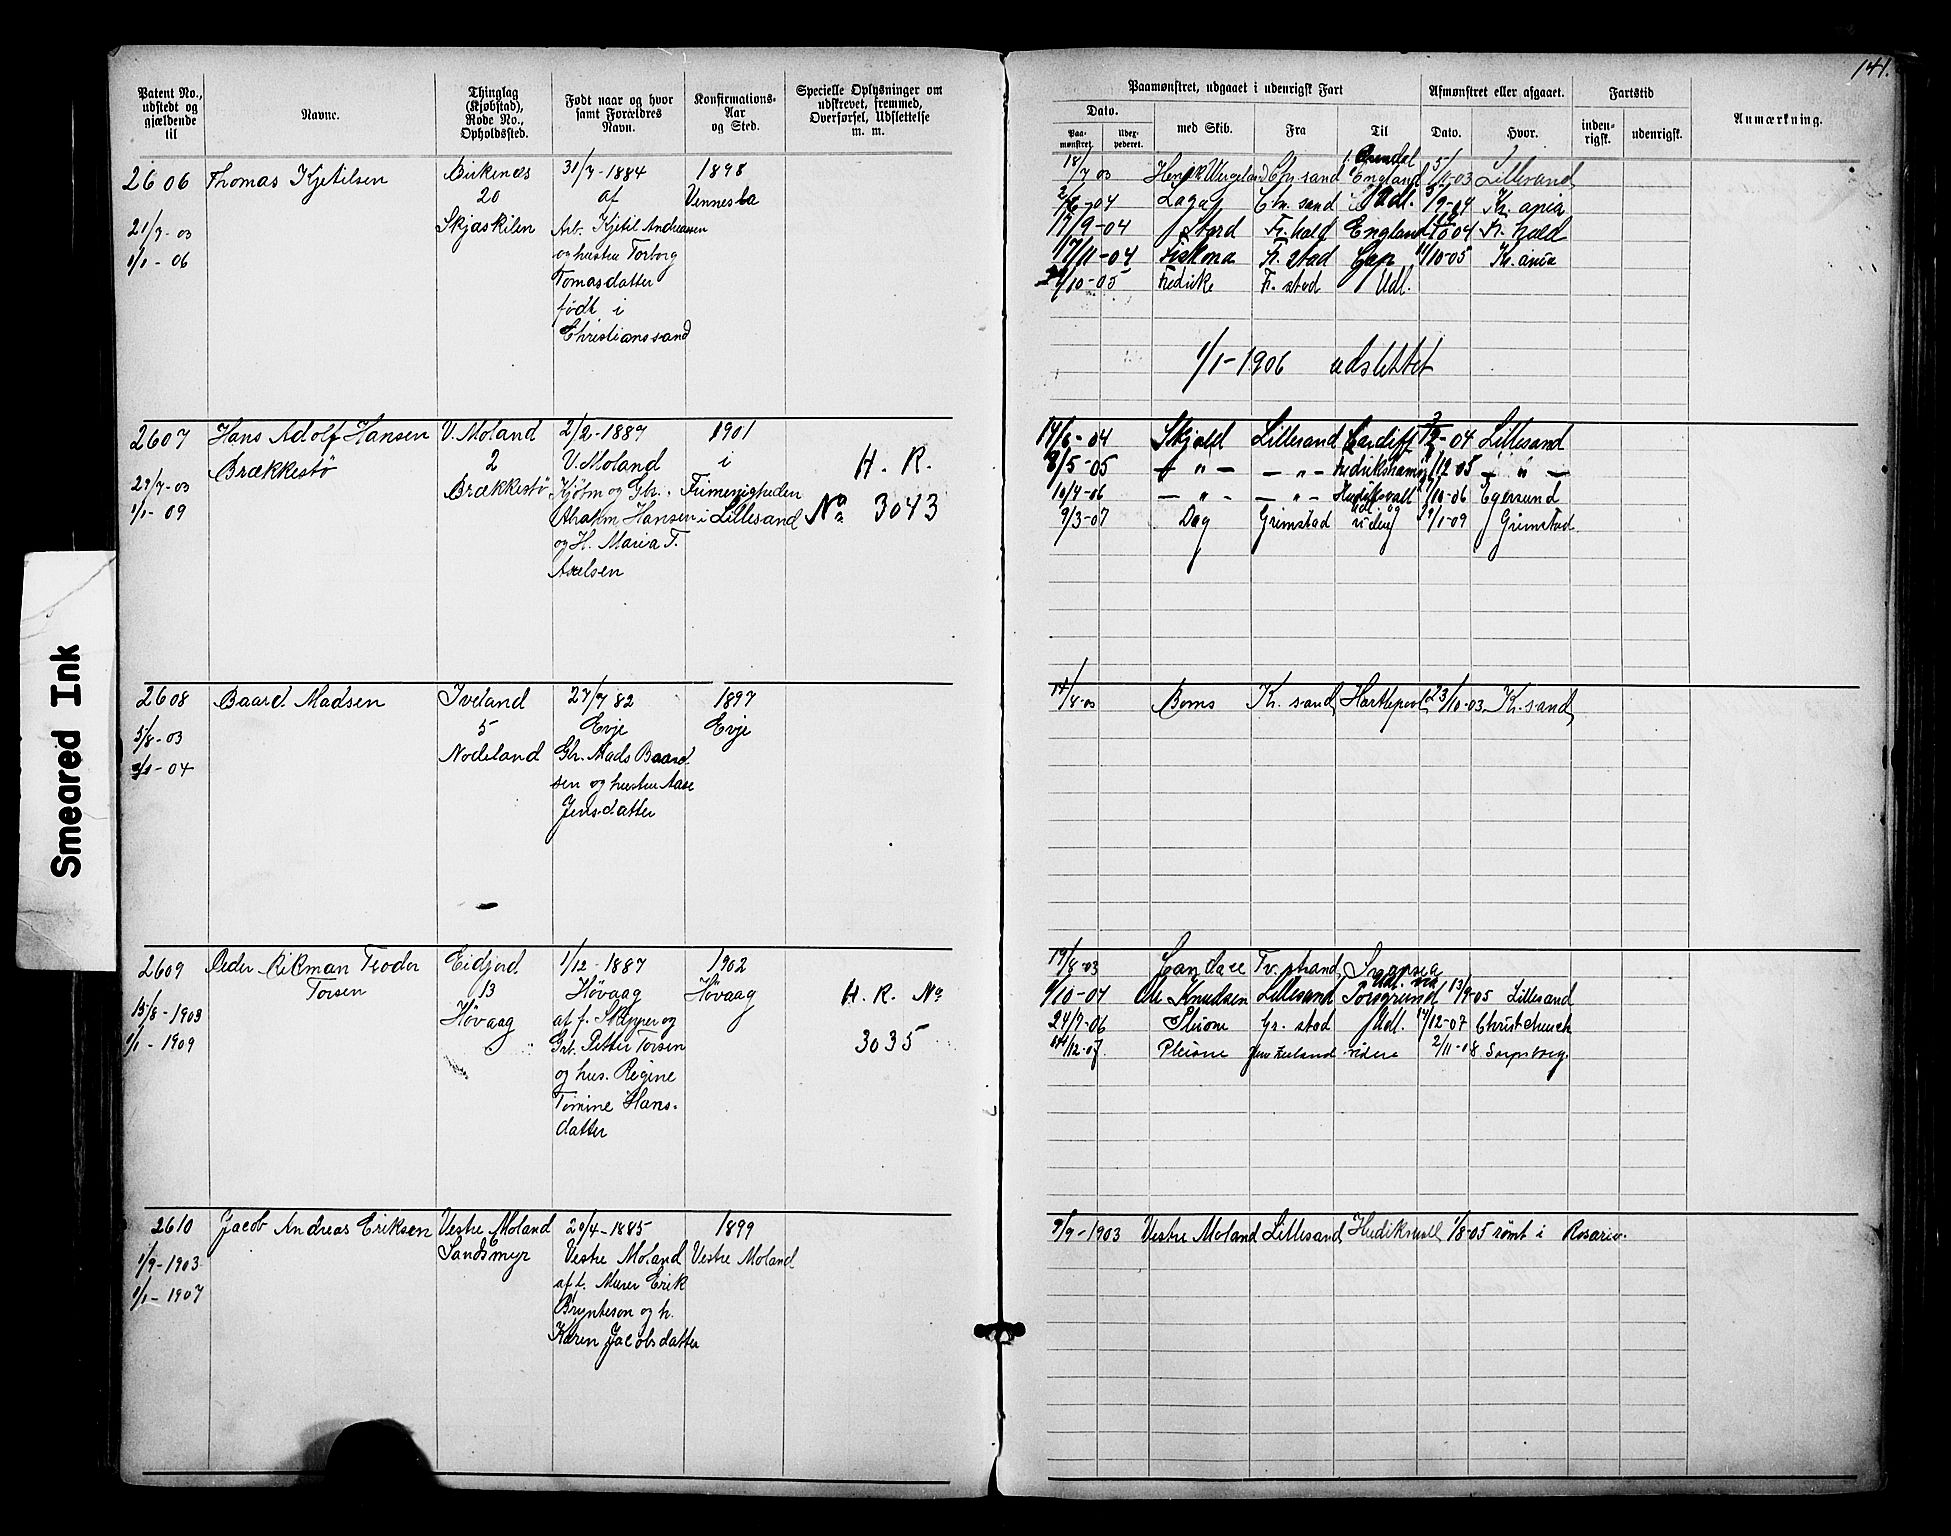 141.
Patent No., udstedt og gjældende til
Navne.
Thinglag (Kjøbstad), Rode No., Opholdssted.
Født naar og hvor samt Forældres Navn.
Konfirmations-Aar og Sted.
Specielle Oplysninger om udskrevet, fremmed, Overførsel, Udslettelse m. m.
Paamønstret, udgaaet i udenrigsk Fart
Dato.
Paamønstret.
Udexpederet.
med Skib.
Fra
Til
Afmønstret eller afgaaet.
Dato.
Hvor.
Fartstid
indenrigsk.
udenrigsk.
Anmærkning.
2606
21/7-03
1/1-06
Thomas Kjetilsen
Birkenes
20
Skjaskilen
31/7-1884
af
Arb. Kjetil Andreassen
og hustru Torborg
Tomasdatter
født i
Christianssand
1898
Vennesla
18/7 03 Henrik Wergeland Chr. sand Arendal England 03 Lillesand
-04 Chr. sand Udl. /9-04 Kr. ania
17/9-04 Stord Fr. hald England 04 Fr. hald
17/11-04 Fr. stad 11/10-05 Kr. ania
/10-05 Fredrike Fr. stad Udl.
1/1-1906 udslettet
2607
29/7-03
1/1-09
Hans Adolf Hansen
Brækkestø
V. Moland
2
Brækkestø
2/2-1887
V. Moland
Kjøbm og Gbr.
Abrahm Hansen
og H. Maria T.
Axelsen
1901
i
Frimenigheden
i Lillesand
H. R.
No 3043
14/6-04 Skjold Lillesand Cardiff -04 Lillesand
8/5-05 — „ — — „ — Fredrikshamn /12-05 — „ —
10/4-06 — „ — — „ — Hudiksvall /10-06 Egersund
9/3-07 Dag Grimstad Udl og videre /1-09 Grimstad
2608
5/8-03
1/1-04
Baard Madsen
Iveland
5
Nodeland
27/7 82
Evje
Gbr. Mads Baard-
sen og hustru Aase
Jensdatter
1897
Evje
14/8-03 Boms Kr. sand Hartlepool 23/10-03 Kr. sand
2609
15/8-1903
1/1-1909
Peder Rikman Teodor
Torsen
Eidjord
13
Høvaag
1/12-1887
Høvaag
af f. Skipper og
Grb. Petter Torsen
og hus. Regine
Tomine Hans-
datter
1902
Høvaag
H. R. No
3035
19/8-03 Candace Tv. strand Swansea
9/10-04 Ole Knudsen Lillesand Udl. via Porsgrund 13/9-05 Lillesand
24/7-06 Pleione Gr. stad Udl. 14/12-07 Christchurch
14/12-07 Pleione New Zeeland videre 2/11-08 Sarpsborg.
2610
1/9-1903
1/1-1907
Jacob Andreas Eriksen
Vestre Moland
6
Sandsmyr
20/4-1885
Vestre Moland
af f. Murer Erik
Brynteson og h.
Karen Jacobsdatter
1899
Vestre Moland
9/9-1903 Vestre Moland Lillesand Hudiksvall 1/8-05 rømt i Rosario.
Smeared Ink